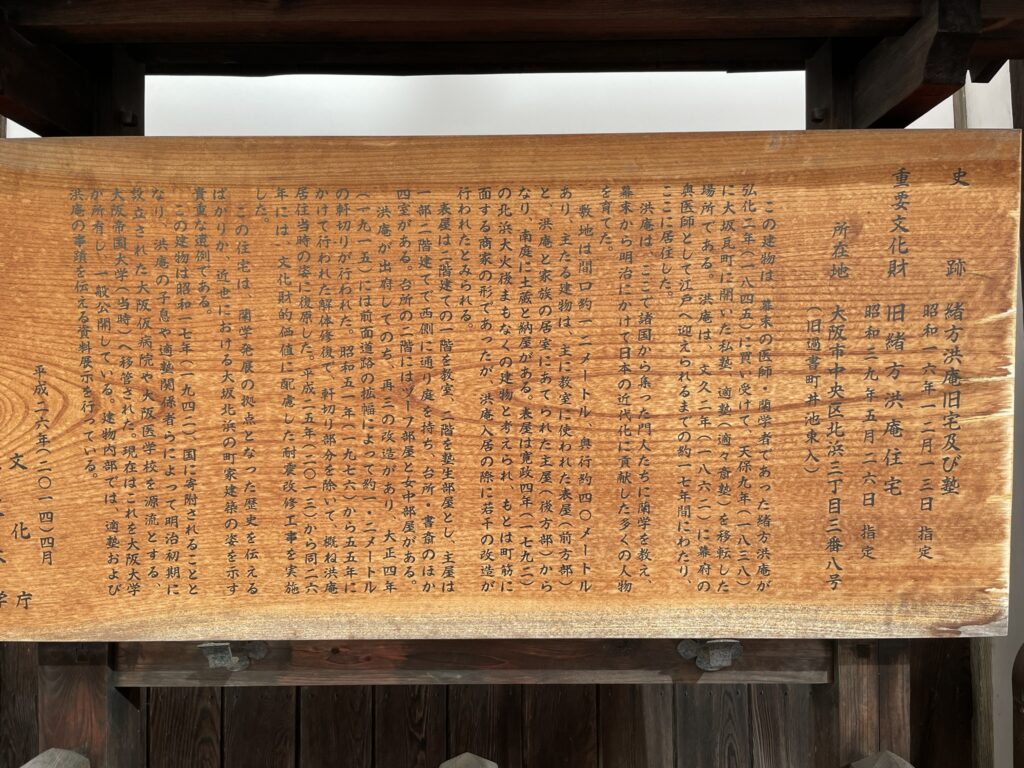 史跡 緒方洪庵旧宅及び塾
昭和一六年一二月一三日 指定
重要文化財 旧緒方洪庵住宅
昭和三九年五月二六日 指定
所在地 大阪市中央区北浜三丁目三番八号
（旧過書町井池東入）
この建物は、幕末の医師・蘭学者であった緒方洪庵が
弘化二年（一八四五）に買い受けて、天保九年（一八三八）
に大坂瓦町に開いた私塾、適塾（適々斎塾）を移転した
場所である。洪庵は、文久二年（一八六二）に幕府の
奥医師として江戸へ迎えられるまでの約一七年間にわたり、
ここに居住した。
洪庵は、ここで諸国から集った門人たちに蘭学を教え、
幕末から明治にかけて日本の近代化に貢献した多くの人物
を育てた。
敷地は間口約一二メートル、奥行約四〇メートル
あり、主たる建物は、主に教室に使われた表屋（前方部）
と、洪庵と家族の居室にあてられた主屋（後方部）から
なり、南庭に土蔵と納屋がある。表屋は寛政四年（一七九二）
の北浜大火後まもなくの建物と考えられ、もとは町筋に
面する商家の形であったが、洪庵入居の際に若干の改造が
行われたとみられる。
表屋は二階建ての一階を教室、二階を塾生部屋とし、主屋は
一部二階建てで西側に通り庭を持ち、台所・書斎のほか
四室がある。台所の二階にはヅーフ部屋と女中部屋がある。
洪庵が出府してのち、再三の改造があり、大正四年
（一九一五）には前面道路の拡幅によって約一・二メートル
の軒切りが行われた。昭和五一年（一九七六）から五五年に
かけて行われた解体修復で、軒切り部分を除いて、概ね洪庵
居住当時の姿に復原した。平成二五年（二〇一三）から同二六
年には、文化財的価値に配慮した耐震改修工事を実施
した。
この住宅は、蘭学発展の拠点となった歴史を伝える
ばかりか、近世における大坂北浜の町家建築の姿を示す
貴重な遺例である。
この建物は昭和一七年（一九四二）国に寄附されることと
なり、洪庵の子息や適塾関係者らによって明治初期に
設立された大阪仮病院や大阪医学校を源流とする、
大阪帝国大学（当時）へ移管された。現在はこれを大阪大学
が所有し、一般公開している。建物内部では、適塾および
洪庵の事蹟を伝える資料展示を行っている。
平成二六年（二〇一四）四月
文化庁
学